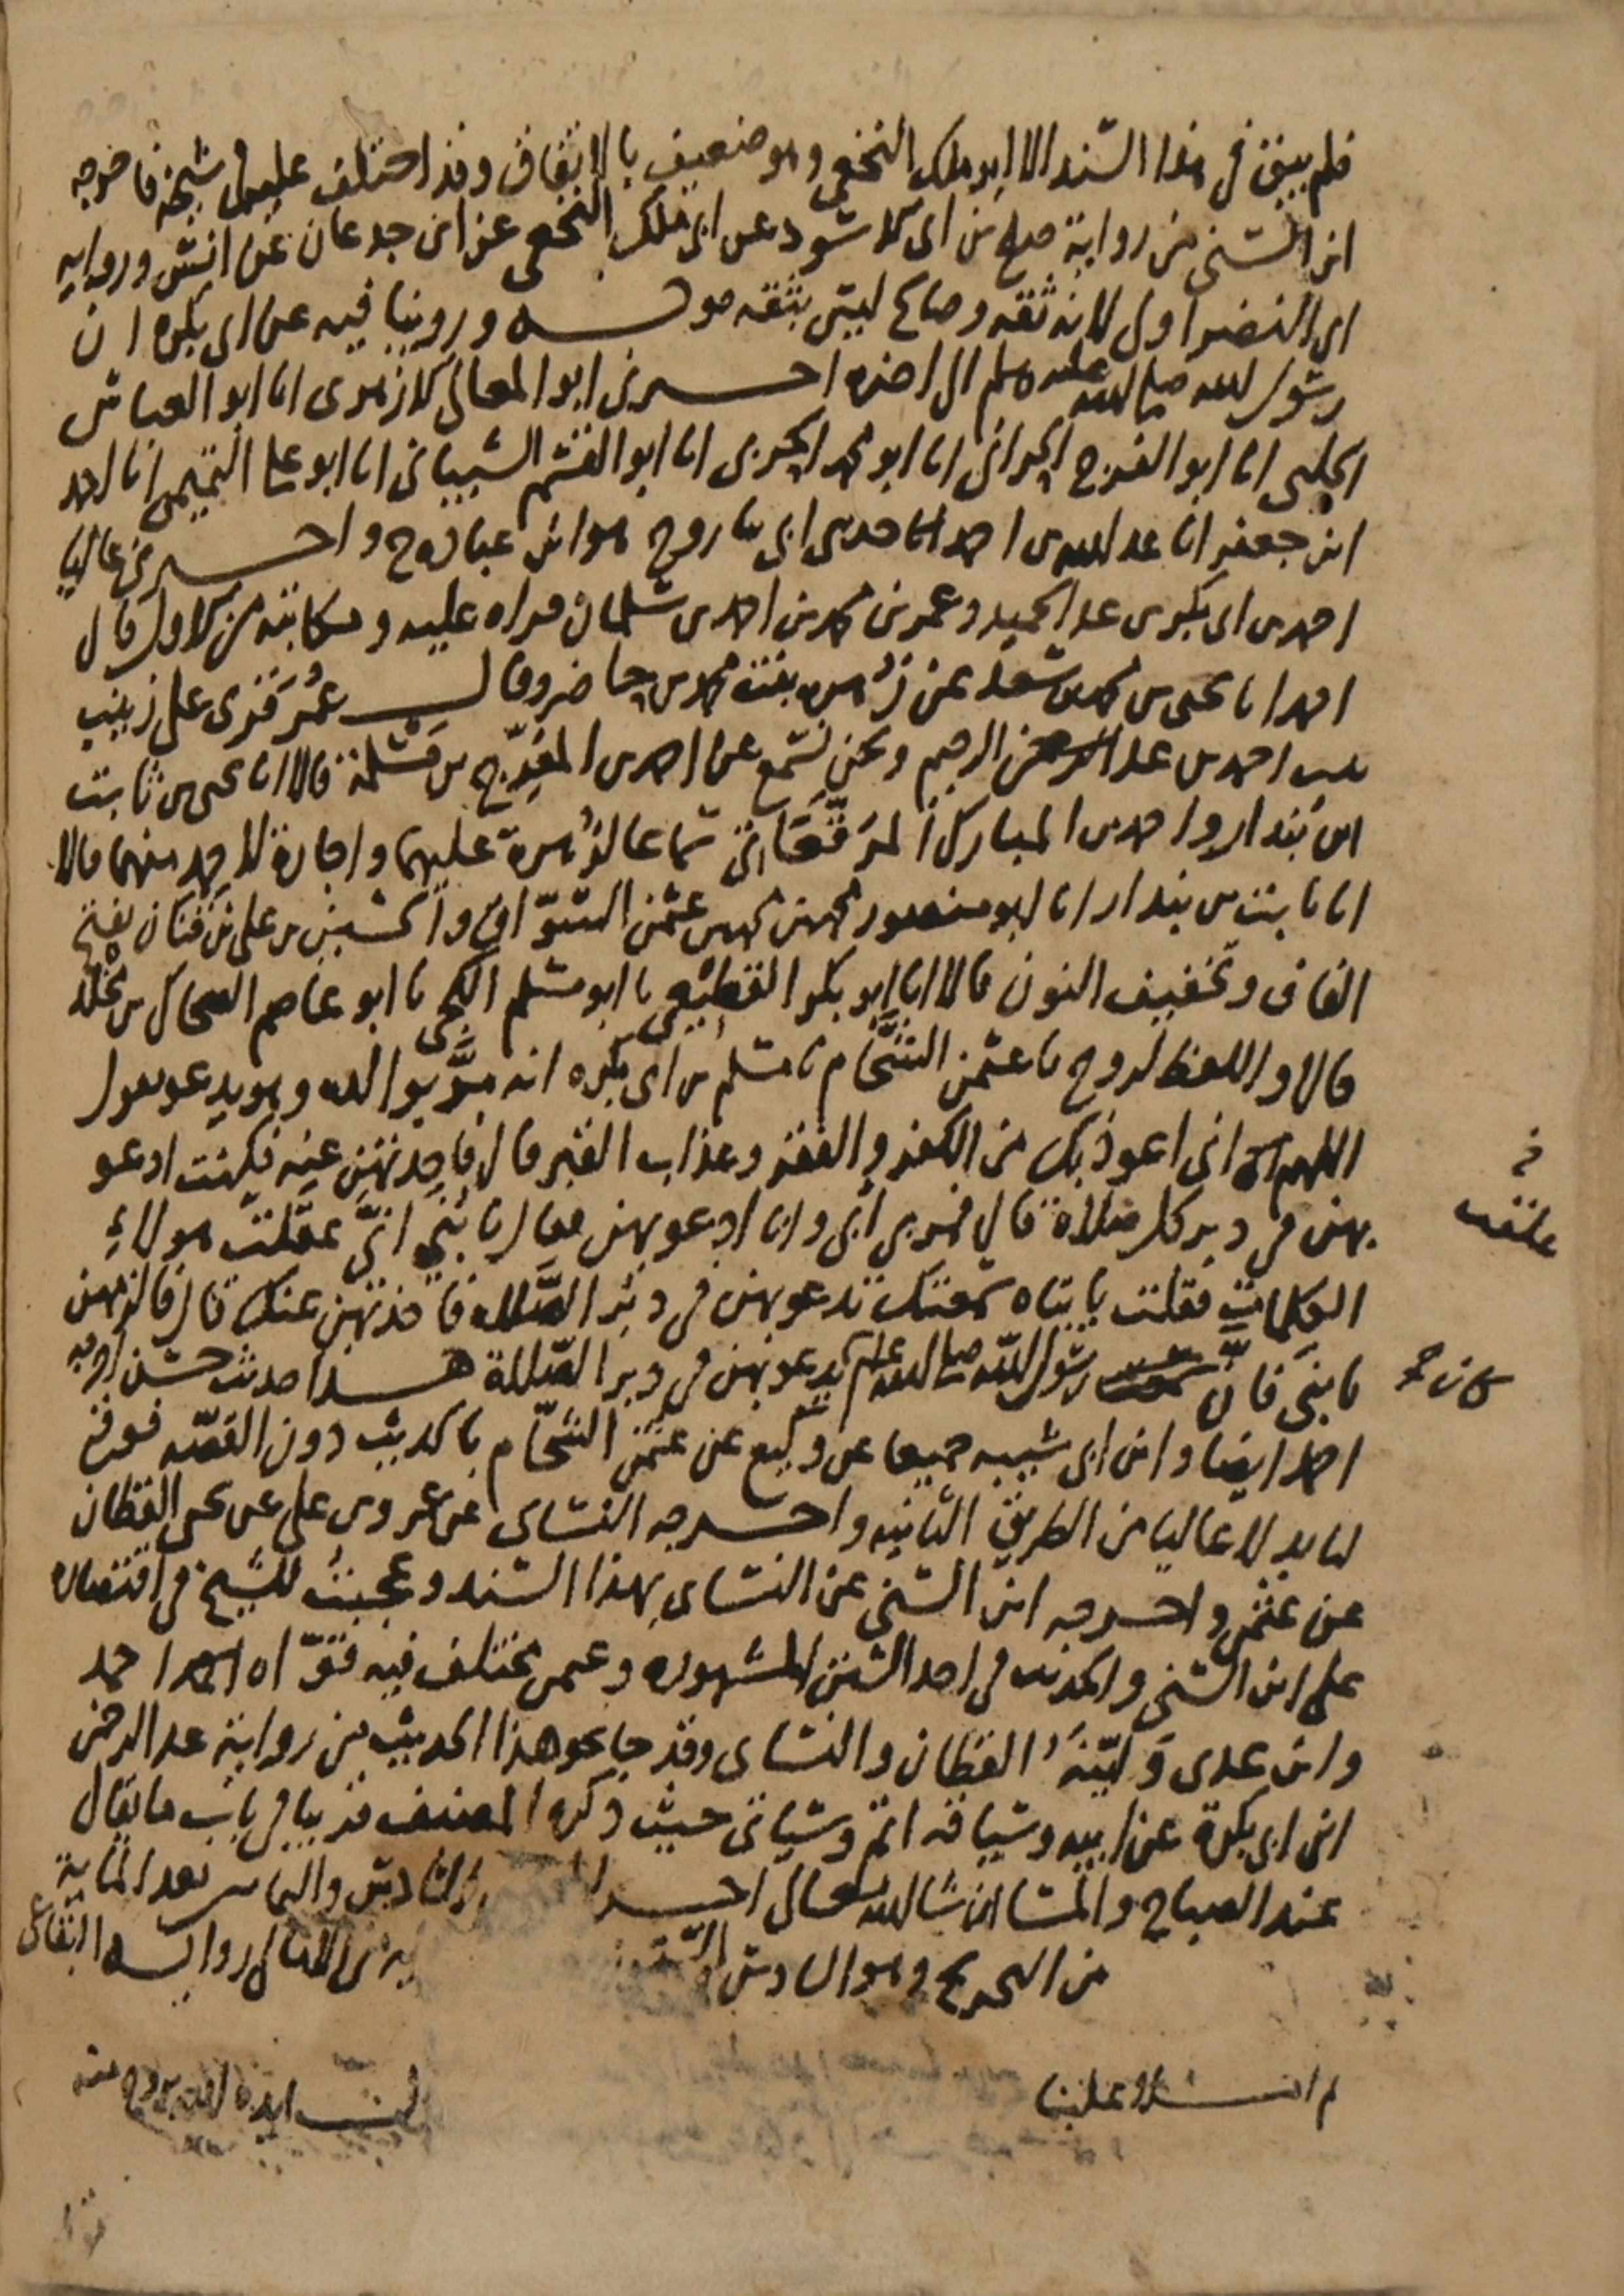 فلم يبق في هذا السند الا ابو ملك النخعي وهو ضعيف بالاتفاق وقد اختلف عليه في شيخه فاخرجه
ابن السني من رواية صالح بن ابي الاسود عن ابي ملك النخعي عن ابن جدعان عن انس ورواية
ابي النضر اولى لانه ثقة وصالح ليس بثقة قوله وروينا فيه عن ابي بكرة ان
رسول الله صلى الله عليه وسلم الى اخره اخبرني ابو المعالي الازهري انا ابو العباس
الحلبي انا ابو الفرج الحراني انا ابو محمد الحربي انا ابو القسم الشيباني انا ابو علي التميمي انا احمد
ابن جعفر انا عبد الله بن احمد حدثني ابي ثنا روح هو ابن عبادة ح واخبرني عاليا
احمد بن ابي بكر بن عبد الحميد وعمر بن محمد بن احمد بن سلمان قراه عليه ومكاتبة من الاول قال
احمد انا يحيى بن محمد بن سعد عن زهرة بنت محمد بن حاضر وقال عمر قرئ على زينب
بنت احمد بن عبد الرحيم ونحن نسمع عن احمد بن المفرج بن مسلمة قالا انا يحيى بن ثابت
ابن بندار واحمد بن المبارك المرقعاتي سماعا لزهرة عليهما واجازة لاحمد منهما قالا
انا ثابت بن بندار انا ابو منصور محمد بن محمد بن عثمن السواق والحسين بن علي بن قنان بفتح
القاف وتخفيف النون قالا انا ابو بكر القطيعي نا ابو مسلم الكجي نا ابو عاصم الضحاك بن مخلد
قالا واللفظ لروح نا عثمن الشحام نا مسلم بن ابي بكرة انه مر بوالده وهو يدعو يقول
اللهم اني اعوذ بك من الكفر والفقر وعذاب القبر قال فاخذتهن عنه فكنت ادعو
بهن في دبر كل صلاة قال فمر بي ابي وانا ادعو بهن فقال يا بني انى عقلت هولاء
الكلمات فقلت يا ابتاه سمعتك تدعو بهن في دبر الصلاة فاخذتهن عنك قال فالزمهن
يا بني فان رسول الله صلى الله عليه وسلم يدعو بهن في دبر الصلاة هذا حديث حسن اخرجه
احمد ايضا وابن ابي شيبه جميعا عن وكيع عن عثمن الشحام بالحديث دون القصة فوقع
لنا بدلا عاليا من الطريق الثانيه واخرجه النساي عن عمرو بن علي عن يحيى القطان
عن عثمن واخرجه ابن السني عن النساي بهذا السند وعجبت للشيخ في اقتصاره
على ابن السني والحديث في احد السنن المشهوره وعثمن مختلف فيه فقواه احمد
وابن عدي ولينه القطان والنساي وقد جا نحو هذا الحديث من رواية عبد الرحمن
ابن ابي بكرة عن ابيه وسياقه اتم وسياتي حيث ذكره المصنف قريبا في باب ما يقال
عند الصباح والمسا ان شا الله تعالى اخر السادس بعد الماية
من التخريج وهو السادس
ثم املا علينا
علقت
كان